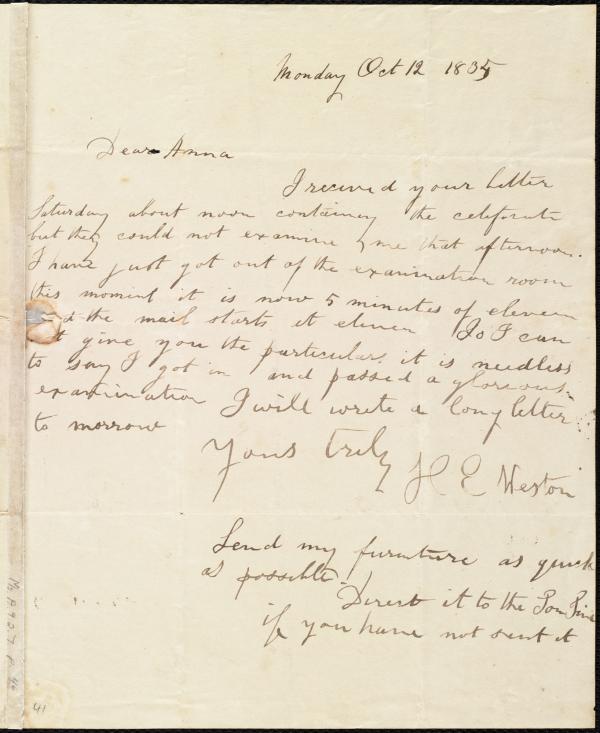 Monday Oct 12 1835
Dear Anna
I received your letter
Saturday about noon containing the certificate
but they could not examine me that afternoon.
I have just got out of the examination room
this moment it is now 5 minutes of eleven
the mail starts at eleven So I can
give you the particulars. it is needless
to say I got in and passed a glorious
examination I will write a long letter
to morrow
Yours truly H E Weston
Send my furniture as quick
as possible.
Direct it to the
if you have not sent it
41